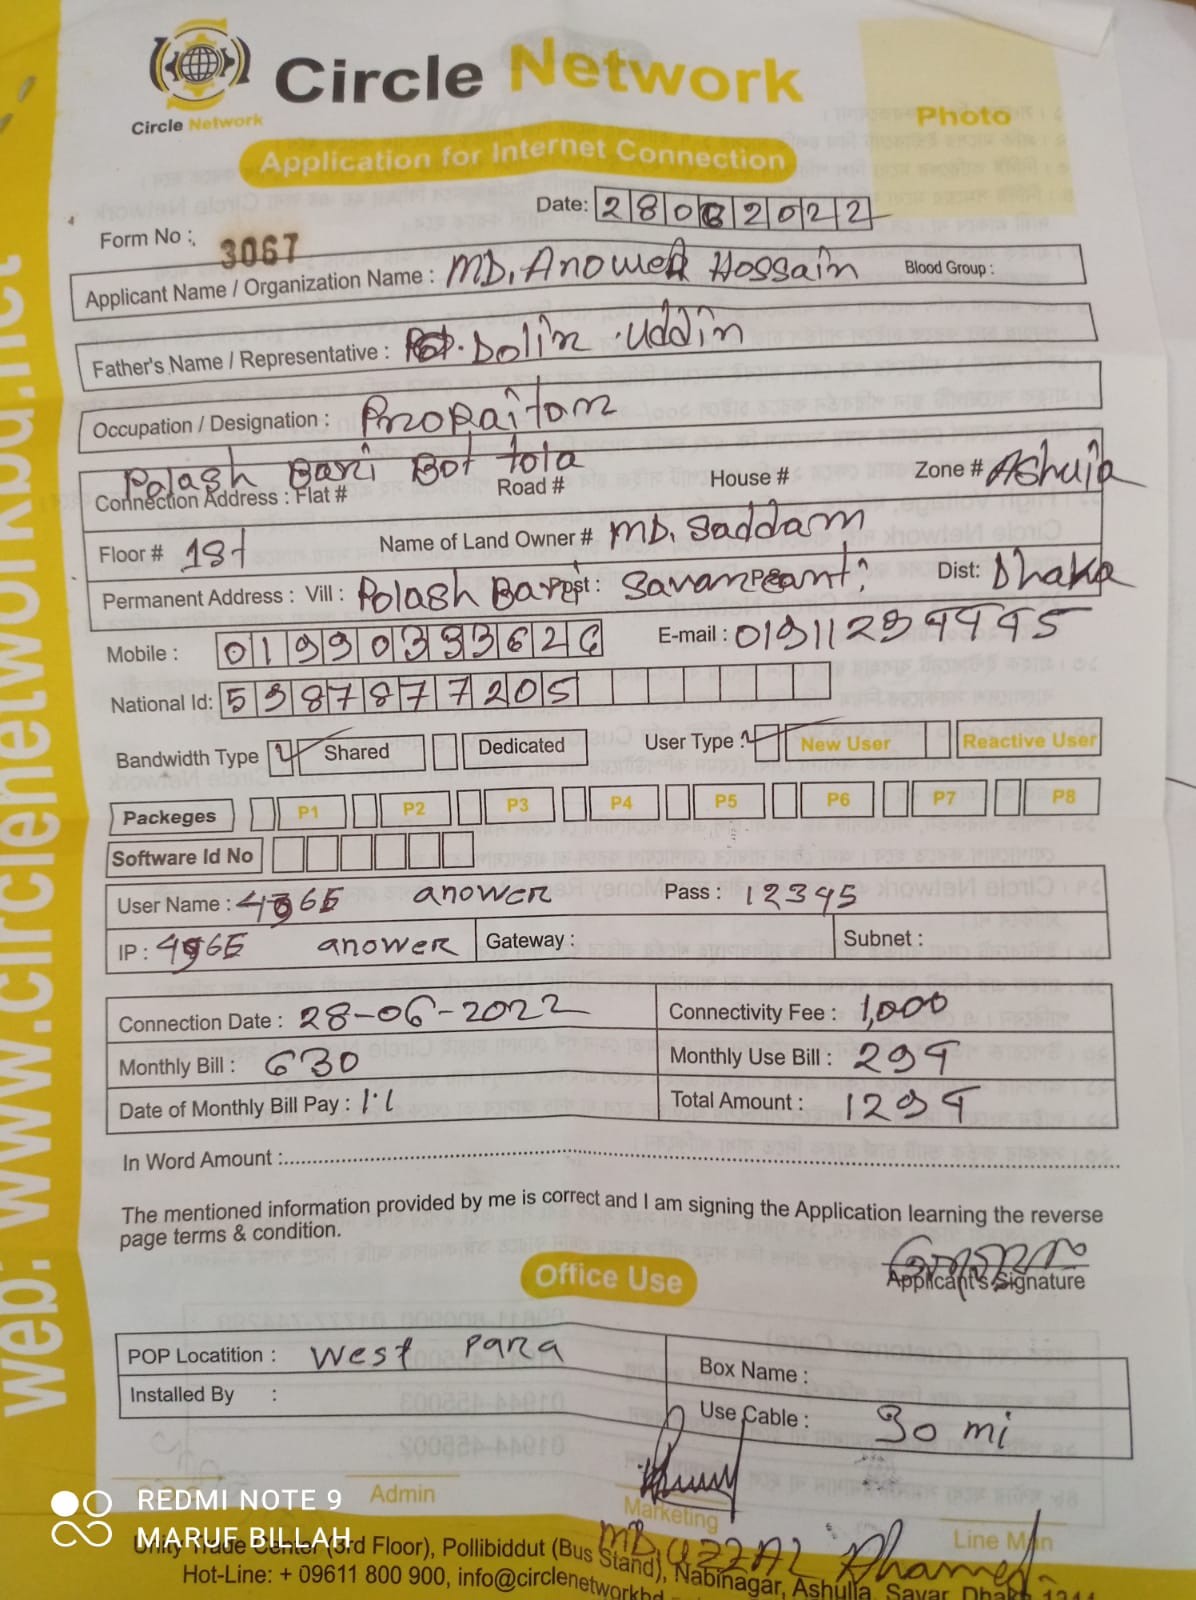 Circle Network
Circle Network
Photo
Application for Internet Connection
Date: 28062022
Form No : 3067
Applicant Name / Organization Name : MD. Anower Hossain Blood Group :
Father's Name / Representative : Dolin Uddin
Occupation / Designation : Propaitor
Palash Bari Bot tola
Connection Address : Flat # Road # House # Zone # Ashuia
Floor # 1st Name of Land Owner # MD. Saddam
Permanent Address : Vill : Polash Bari Post : Savar PS : Dist: Dhaka
Mobile : 01990393626 E-mail : 01911299995
National Id: 5987877205
Bandwidth Type Shared Dedicated User Type : New User Reactive User
Packeges P1 P2 P3 P4 P5 P6 P7 P8
Software Id No
User Name : anower Pass : 12345
IP : anower Gateway : Subnet :
Connection Date : 28-06-2022 Connectivity Fee : 1,000
Monthly Bill : 630 Monthly Use Bill : 294
Date of Monthly Bill Pay : 1.1 Total Amount : 1294
In Word Amount :
The mentioned information provided by me is correct and I am signing the Application learning the reverse
page terms & condition.
Applicant's Signature
Office Use
POP Locatition : West Para Box Name :
Installed By : Use Cable : 30 mi
Admin Marketing Line Man
MD. UZZAL
Unity Trade Center (3rd Floor), Pollibiddut (Bus Stand), Nabinagar, Ashulia, Savar, Dhaka
Hot-Line: + 09611 800 900, info@circlenetworkbd
web: www.circlenetworkbd.net
REDMI NOTE 9
MARUF BILLAH